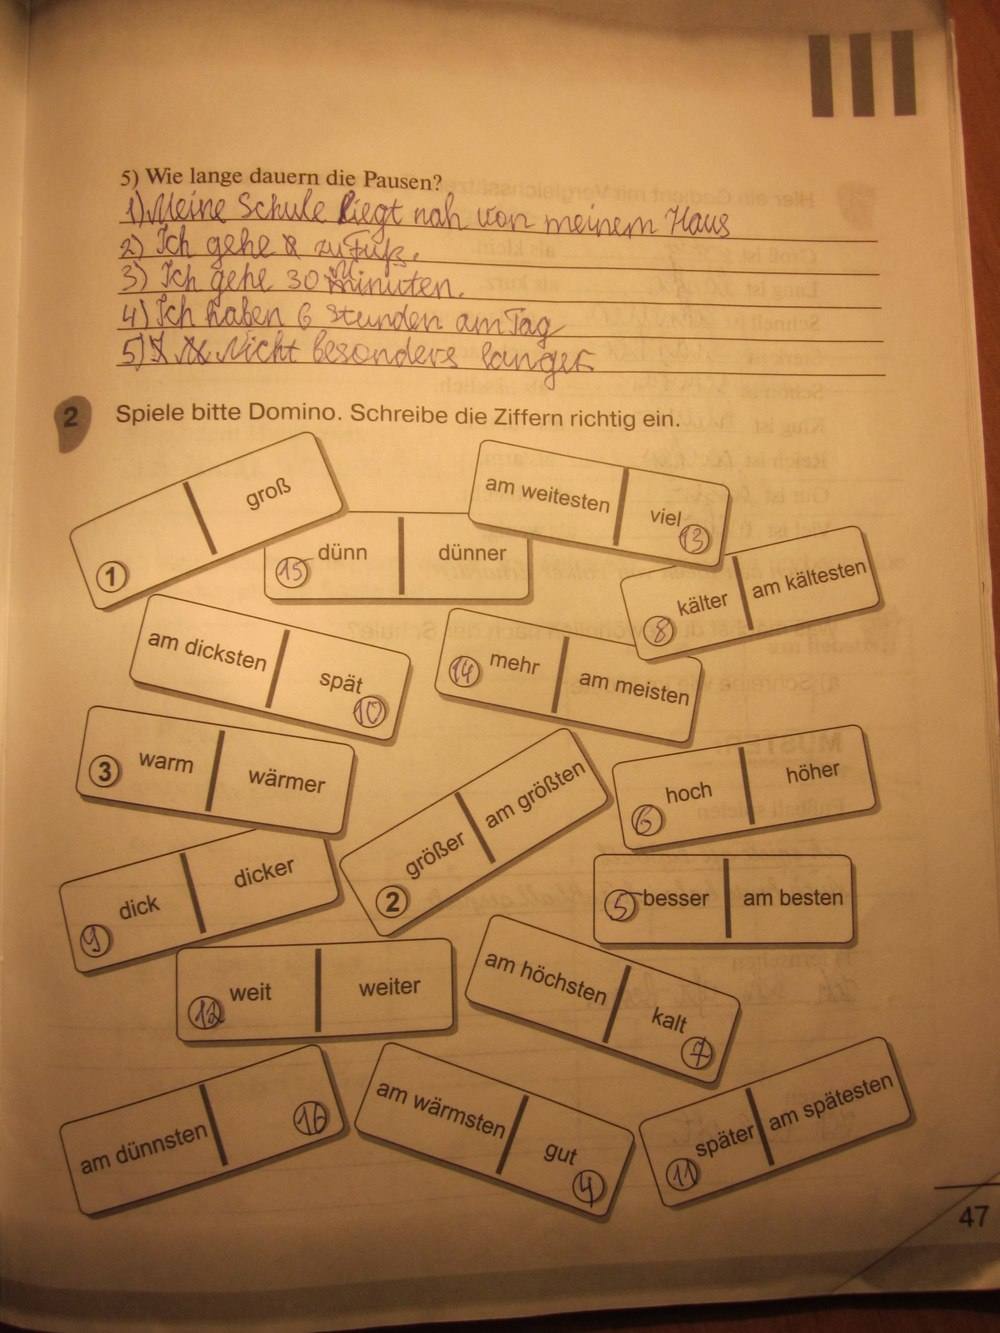 5) Wie lange dauern die Pausen?
1) Meine Schule liegt nah von meinem Haus
2) Ich gehe zu Fuß.
3) Ich gehe 30 Minuten.
4) Ich haben 6 stunden am Tag
5) Nicht besonders langer
2 Spiele bitte Domino. Schreibe die Ziffern richtig ein.
1 groß
am weitesten viel 13
15 dünn dünner
8 kälter am kältesten
am dicksten spät 10
14 mehr am meisten
3 warm wärmer
2 größer am größten
6 hoch höher
9 dick dicker
5 besser am besten
12 weit weiter
am höchsten kalt 7
am dünnsten 16
am wärmsten gut 4
11 später am spätesten
47